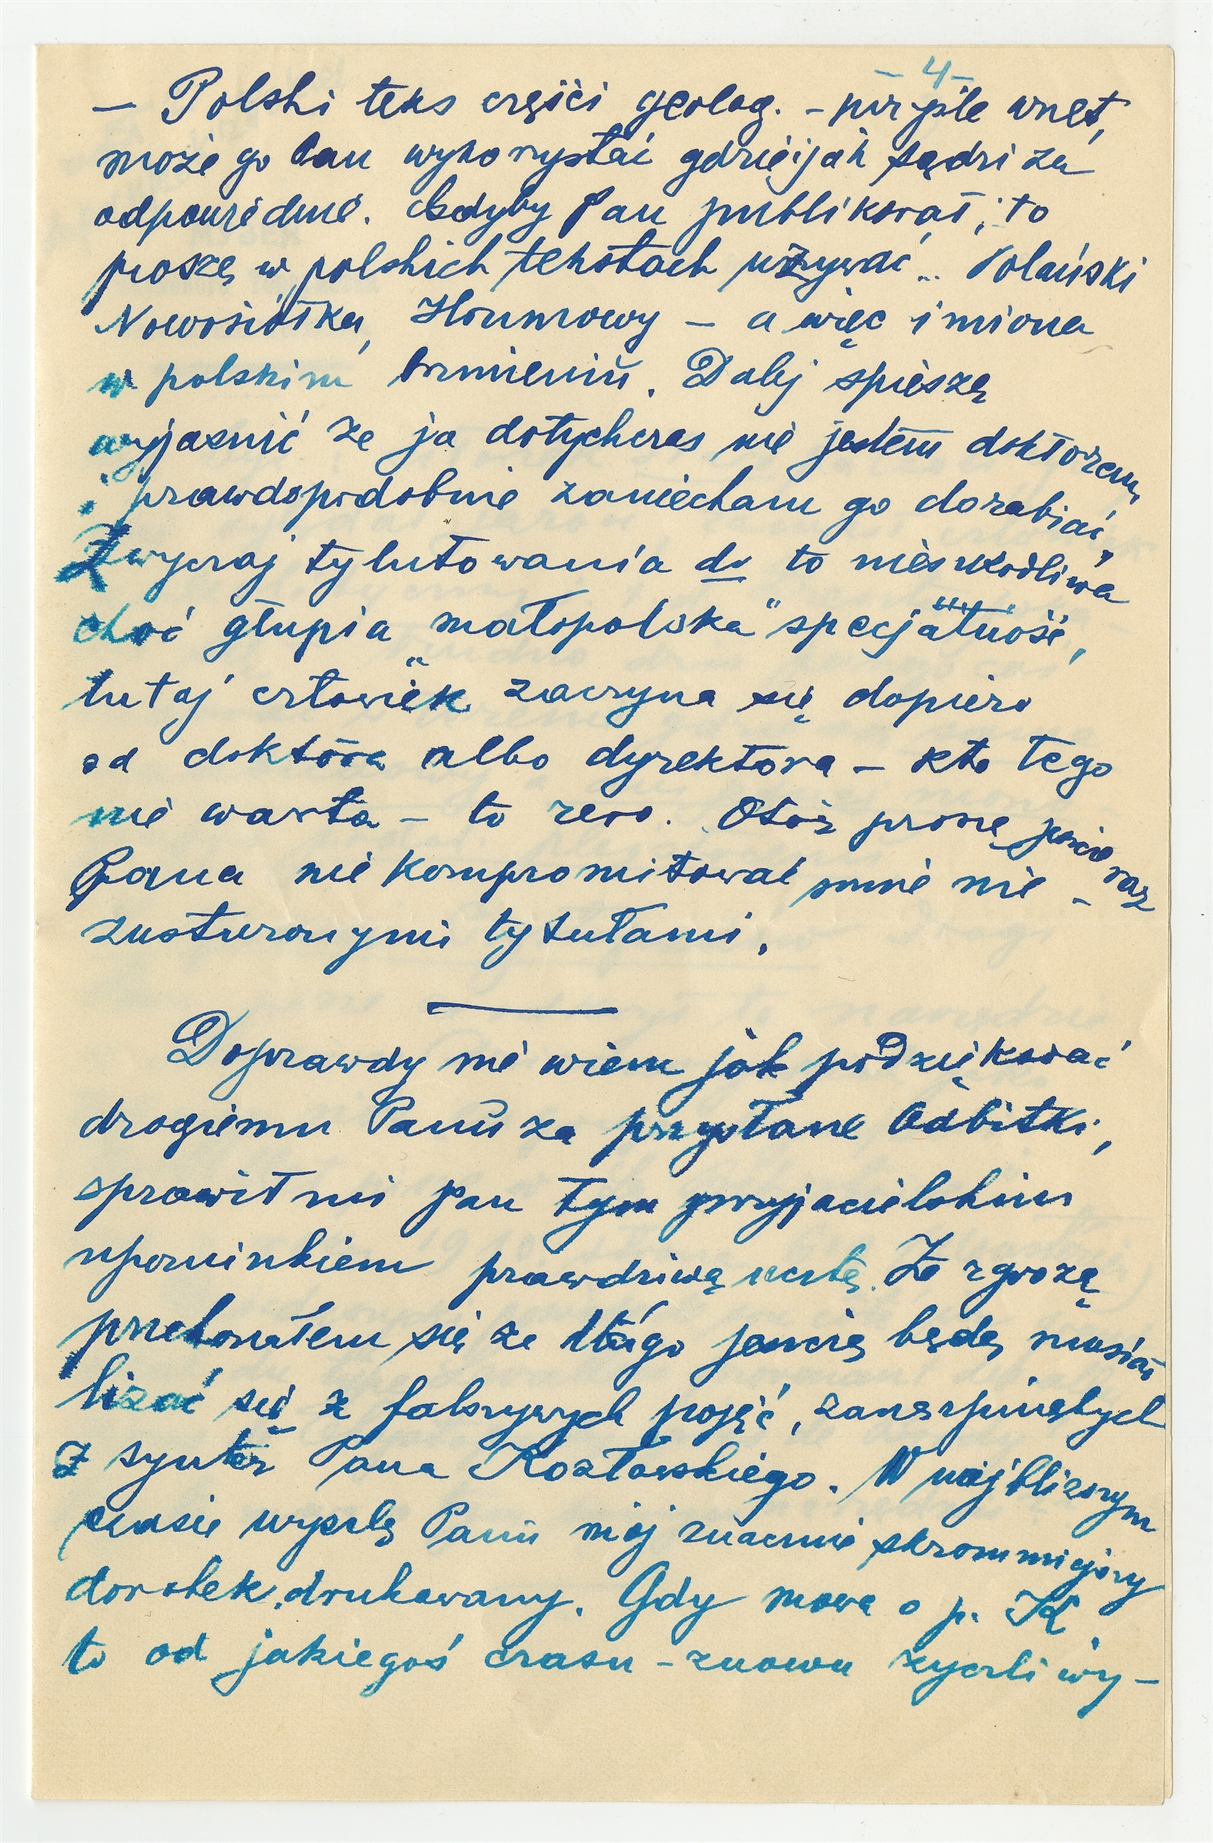 - 4 -
— Polski teks części geolog. - przyśle wnet,
może go Pan wykorystać gdzie i jak sądzi za
odpowiednie. Gdyby Pan publikował, to
proszę w polskich tekstach używać „Polański
Nowosiółka, Horynowy — a więc imiona
w polskim brzmieniu. Dalej spieszę
wyjaśnić że ja dotychczas nie jestem doktorem,
i prawdopodobnie zaniecham go dorabiać,
Zwyczaj tytułowania dr to nieszkodliwa
choć głupia „małopolska" specjalność,
tutaj człowiek zaczyna się dopiero
od doktora albo dyrektora — kto tego
nie warta — to zero. Otóż proszę jeszcze raz
Pana nie kompromitować mnie nie-
zasłużonymi tytułami.
Doprawdy nie wiem jak podziękować
drogiemu Panu za przysłane Odbitki,
sprawił mi Pan tym przyjacielskim
upominkiem prawdziwą ucztę. Ze zgrozą
przekonałem się że długo jeszcze będę musiał
lizać się z fałszywych pojęć, zaczerpniętych
z syntez Pana Kozłowskiego. W najbliższym
czasie wyszlę Panu mój znacznie skromniejszy
dorobek drukowany. Gdy mowa o p. K
to od jakiegoś czasu — znowu życzliwy —